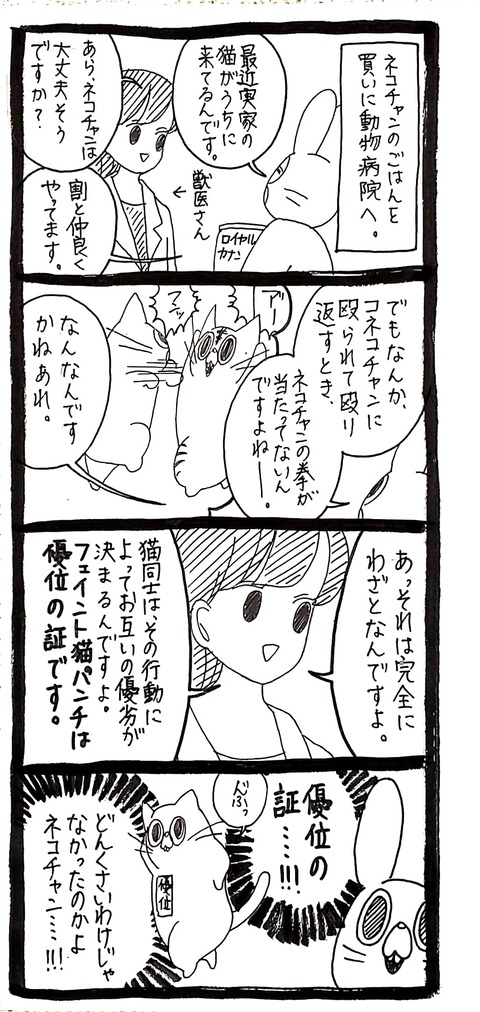 ネコチャンのごはんを
買いに動物病院へ。
最近実家の
猫がうちに
来てるんです。
獣医さん
ロイヤル
カナン
あら、ネコチャンは
大丈夫そう
ですか？
割と仲良く
やってます。
でもなんか、
コネコチャンに
殴られて殴り
返すとき、
ネコチャンの拳が
当たってないん
ですよねー。
アー
マンッ
なんなんです
かねあれ。
あっそれは完全に
わざとなんですよ。
猫同士は、その行動に
よってお互いの優劣が
決まるんですよ。
フェイント猫パンチは
優位の証です。
優位の
証……!!!
んふっ
優位
どんくさいわけじゃ
なかったのかよ
ネコチャン……!!!